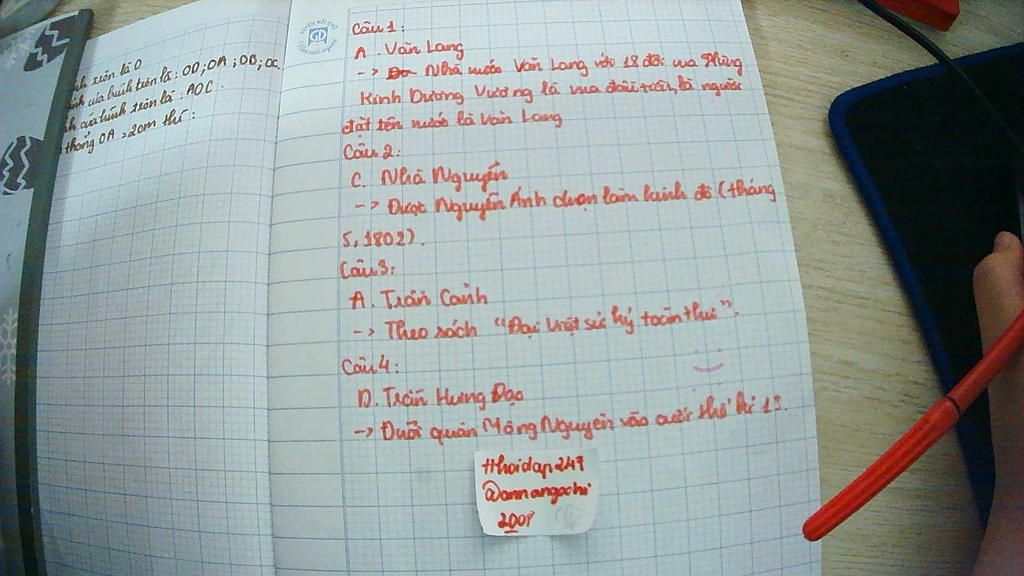 tròn là O
của hình tròn là: OD; OA; OB; OC.
của hình tròn là: AOC.
thẳng OA = 20m thì:
Câu 1:
A. Văn Lang
-> Nhà nước Văn Lang với 18 đời vua Hùng
Kinh Dương Vương là vua đầu tiên, là người
đặt tên nước là Văn Lang
Câu 2:
C. Nhà Nguyễn
-> Được Nguyễn Ánh chọn làm kinh đô (tháng
5, 1802).
Câu 3:
A. Trần Cảnh
-> Theo sách "Đại Việt sử ký toàn thư".
Câu 4:
D. Trần Hưng Đạo
-> Đuổi quân Mông Nguyên vào cuối thế kỉ 13.
#hoidap247
@annangochi
2009